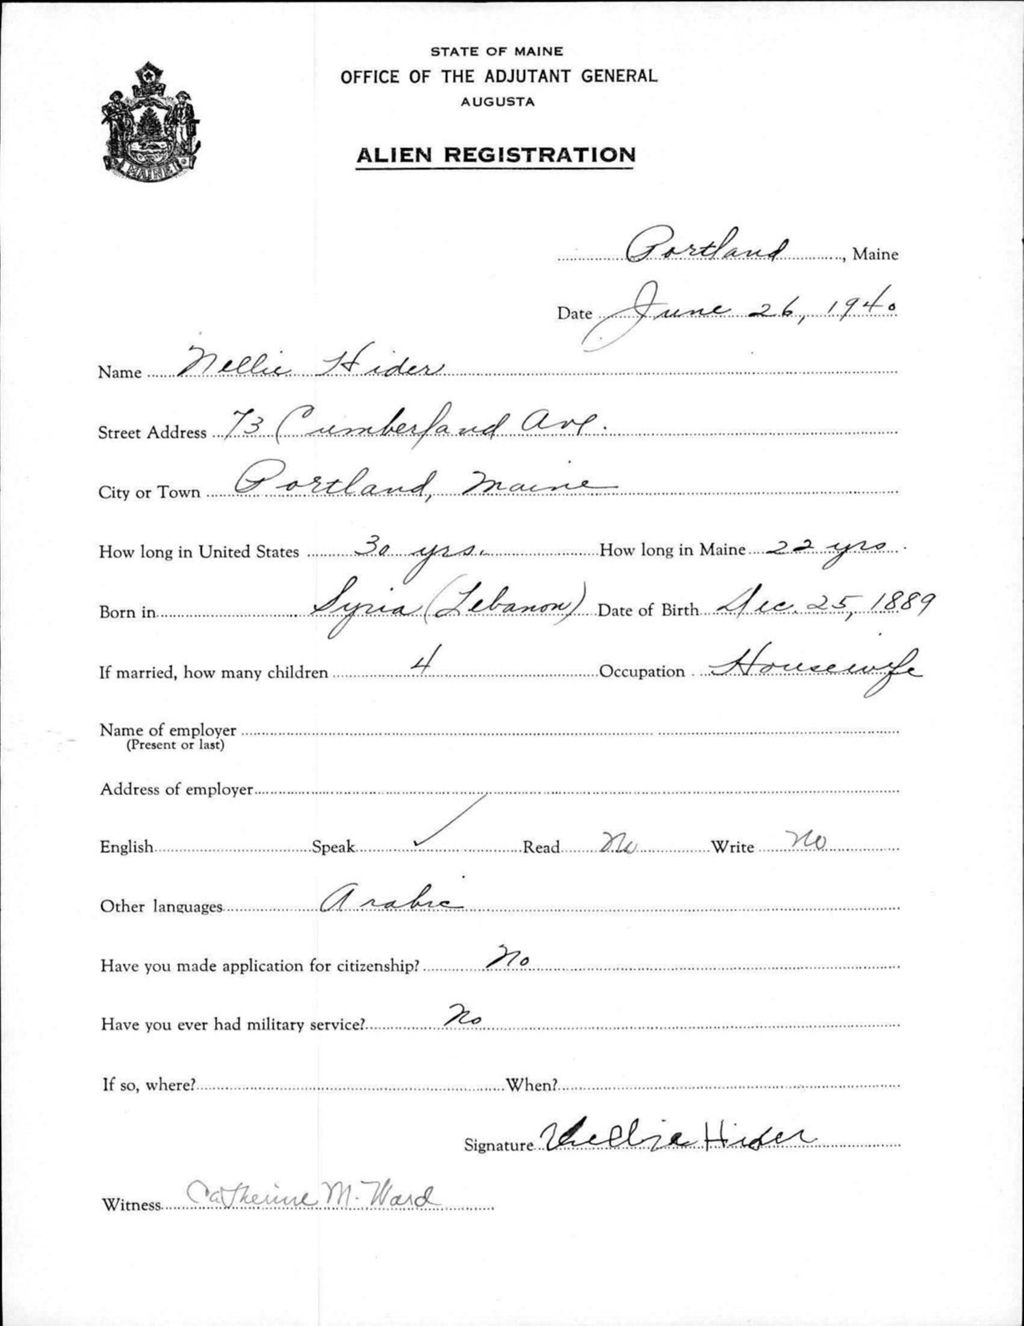 STATE OF MAINE
OFFICE OF THE ADJUTANT GENERAL
AUGUSTA
ALIEN REGISTRATION
MAINE
Portland, Maine
Date June 26, 1940
Name Nellie Hider
Street Address 73 Cumberland Ave.
City or Town Portland, Maine
How long in United States 30 yrs. How long in Maine 22 yrs.
Born in Syria (Lebanon) Date of Birth Dec. 25, 1889
If married, how many children 4 Occupation Housewife
Name of employer
(Present or last)
Address of employer
English Speak ✓ Read No Write No
Other languages Arabic
Have you made application for citizenship? No
Have you ever had military service? No
If so, where? When?
Signature Nellie Hider
Witness Catherine M. Ward